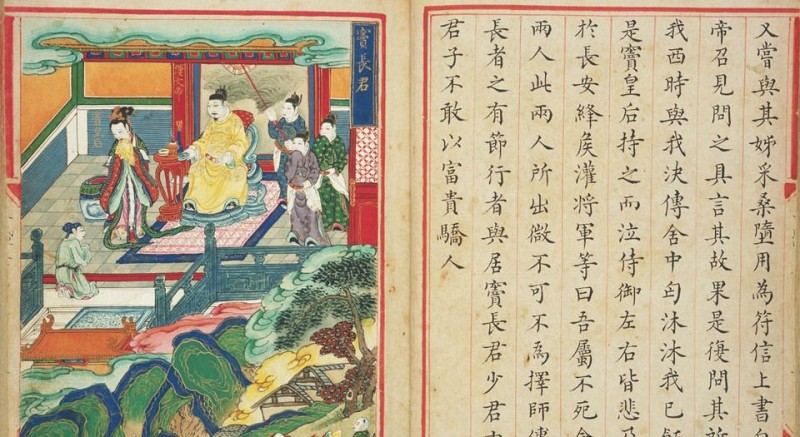 竇長君
又嘗與其姊采桑墮用為符信上書自
帝召見問之具言其故果是復問其所
我西時與我決傳舍中匄沐沐我已飯
是竇皇后持之而泣侍御左右皆悲乃
於長安絳侯灌將軍等曰吾屬不死命
兩人此兩人所出微不可不為擇師傅
長者之有節行者與居竇長君少君由
君子不敢以富貴驕人